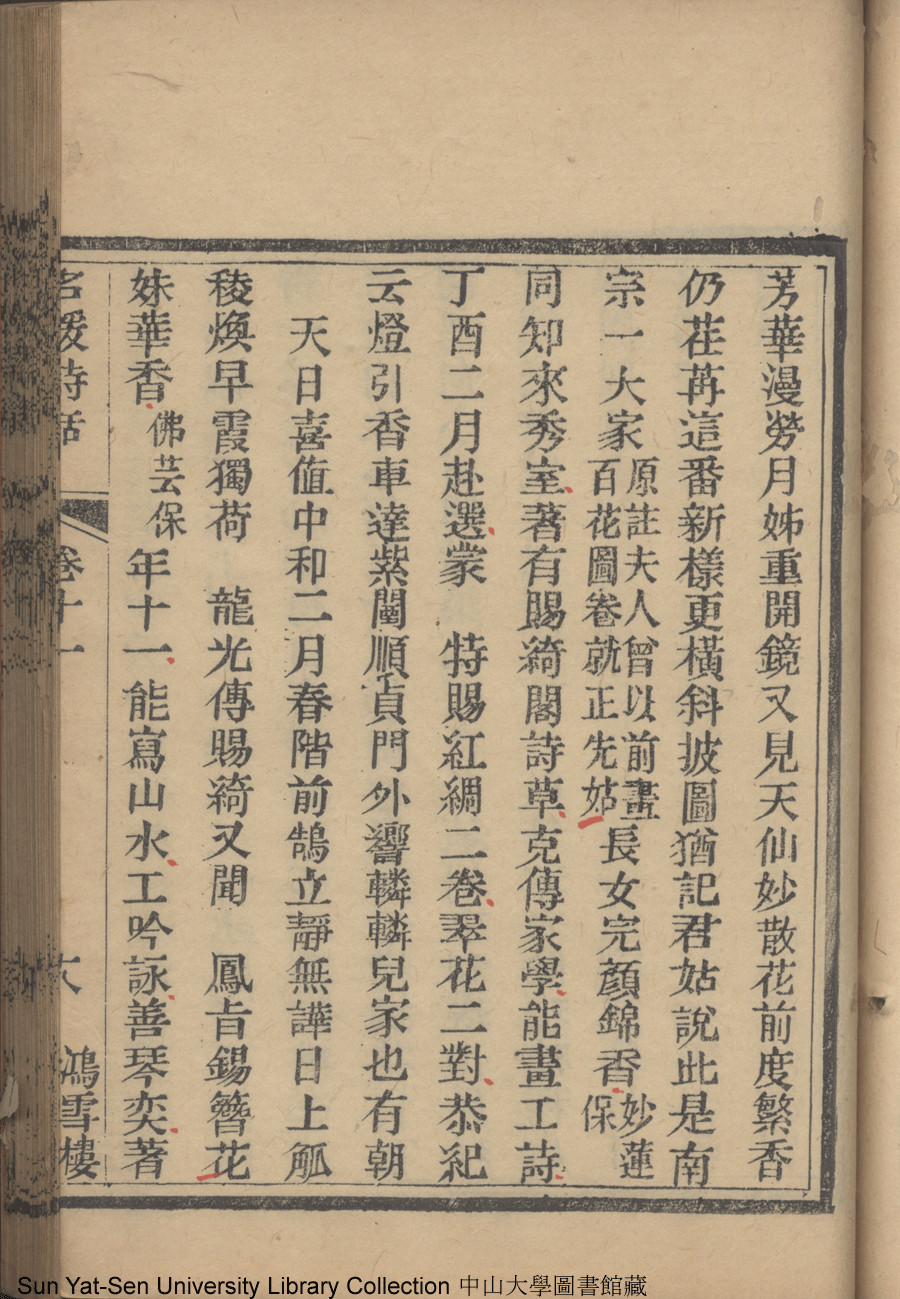 芳華漫勞月姊重開鏡又見天仙妙散花前度繁香
仍荏苒這番新樣更橫斜披圖猶記君姑說此是南
宗一大家原註夫人曾以前畫百花圖卷就正先姑長女完顏錦香妙蓮保
同知來秀室著有賜綺閣詩草克傳家學能畫工詩
丁酉二月赴選蒙 特賜紅綢二卷翠花二對恭紀
云燈引香車達紫闈順貞門外響轔轔兒家也有朝
天日喜值中和二月春階前鵠立靜無譁日上觚
稜煥早霞獨荷 龍光傳賜綺又聞 鳳旨錫簪花
妹華香佛芸保年十一能寫山水工吟詠善琴奕著
名媛詩話 卷十一 大 鴻雪樓
Sun Yat-Sen University Library Collection 中山大學圖書館藏